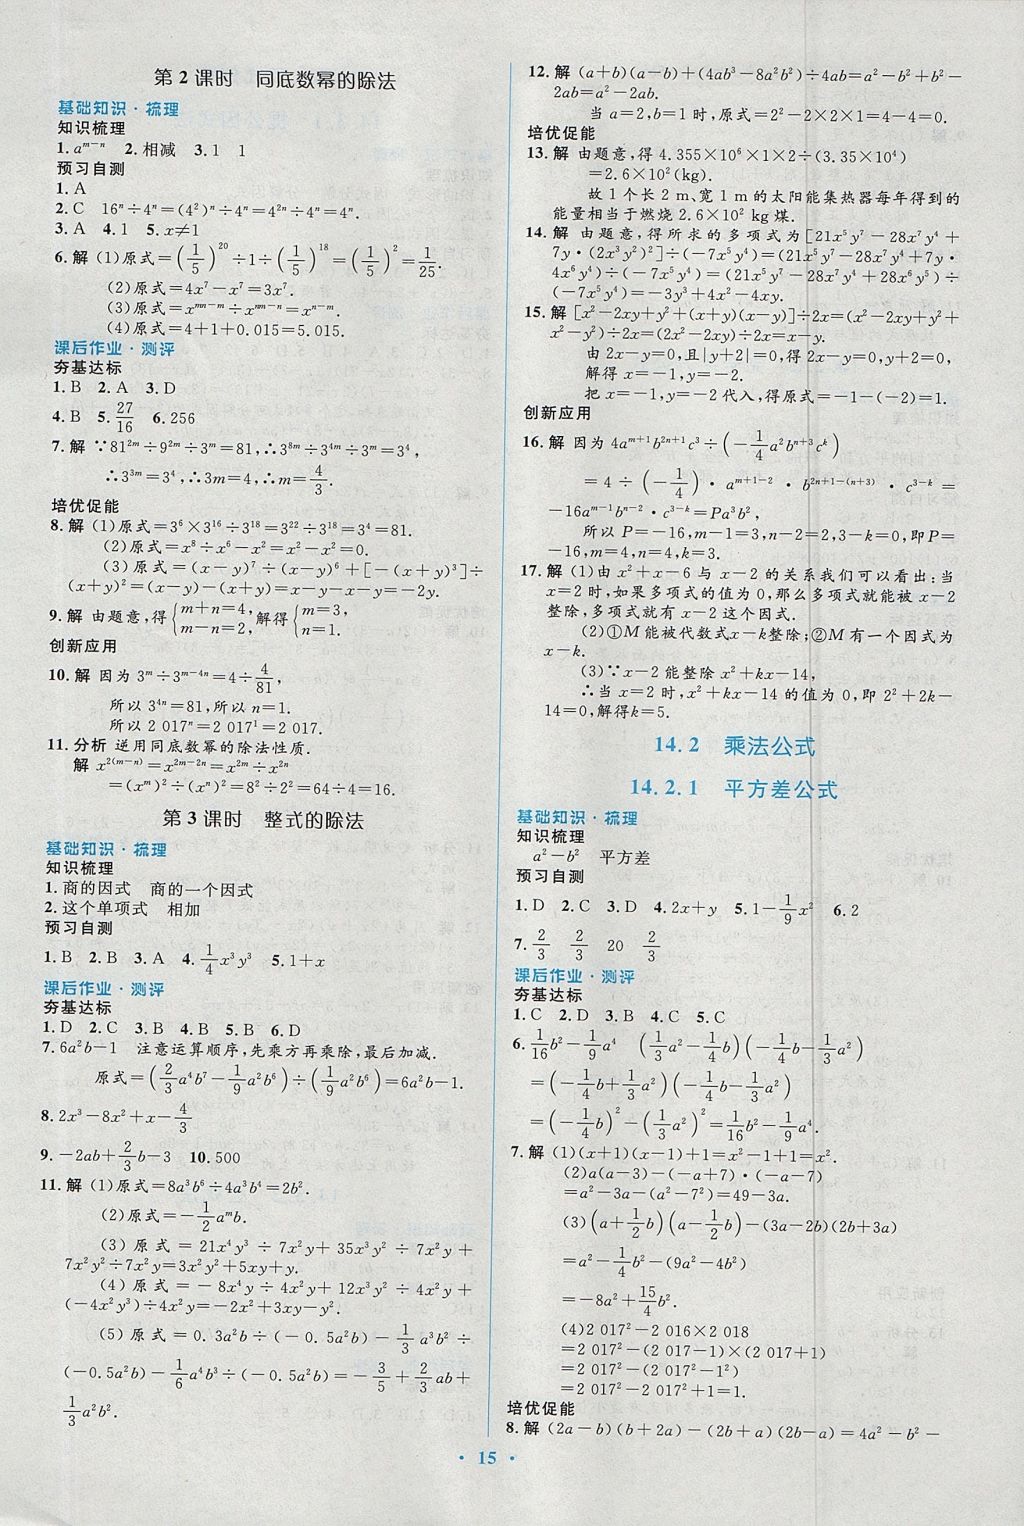 第2课时　同底数幂的除法
基础知识·梳理
知识梳理
1.a^{m-n}　2.相减　3.1　1
预习自测
1.A
2.C　16ⁿ÷4ⁿ=(4²)ⁿ÷4ⁿ=4²ⁿ÷4ⁿ=4ⁿ.
3.A　4.1　5.x≠1
6.解 (1)原式=(1/5)^{20}÷1÷(1/5)^{18}=(1/5)²=1/25.
(2)原式=4x⁷-x⁷=3x⁷.
(3)原式=x^{mn-m}÷x^{mn-n}=x^{n-m}.
(4)原式=4+1+0.015=5.015.
课后作业·测评
夯基达标
1.B　2.A　3.D
4.B　5.27/16　6.256
7.解 ∵81^{2m}÷9^{2m}÷3^m=81,∴3^{8m}÷3^{4m}÷3^m=3⁴,
∴3^{3m}=3⁴,∴3m=4,m=4/3.
培优促能
8.解 (1)原式=3⁶×3^{16}÷3^{18}=3^{22}÷3^{18}=3⁴=81.
(2)原式=x⁸÷x⁶-x²=x²-x²=0.
(3)原式=(x-y)⁷÷(x-y)⁶+[-(x+y)³]÷
(x+y)²=(x-y)-(x+y)=x-y-x-y=-2y.
9.解 由题意,得{m+n=4, m-n=2, 解得{m=3, n=1.
创新应用
10.解 因为 3^m÷3^{m-4n}=4÷4/81,
所以 3^{4n}=81,所以 n=1.
所以 2 017ⁿ=2 017¹=2 017.
11.分析 逆用同底数幂的除法性质.
解 x^{2(m-n)}=x^{2m-2n}=x^{2m}÷x^{2n}
=(x^m)²÷(xⁿ)²=8²÷2²=64÷4=16.
第3课时　整式的除法
基础知识·梳理
知识梳理
1.商的因式　商的一个因式
2.这个单项式　相加
预习自测
1.B　2.B　3.A　4.1/4x³y³　5.1+x
课后作业·测评
夯基达标
1.D　2.C　3.D　4.B　5.B　6.D
7.6a²b-1　注意运算顺序,先乘方再乘除,最后加减.
原式=(2/3a⁴b⁷-1/9a²b⁶)÷(1/9a²b⁶)=6a²b-1.
8.2x³-8x²+x-4/3
9.-2ab+2/3b-3　10.500
11.解 (1)原式=8a³b⁶÷4a³b⁴=2b².
(2)原式=-1/2a^m b.
(3)原式=21x⁴y³÷7x²y+35x³y²÷7x²y+
7x²y²÷7x²y=3x²y²+5xy+y.
(4)原式=-8x⁴y÷4x²y+12x³y²÷4x²y+
(-4x²y³)÷4x²y=-2x²+3xy-y².
(5)原式=0.3a²b÷(-0.5a²b)-1/3a³b²÷
(-0.5a²b)-1/6a⁴b³÷(-0.5a²b)=-3/5+2/3ab+
1/3a²b².
12.解 (a+b)(a-b)+(4ab³-8a²b²)÷4ab=a²-b²+b²-
2ab=a²-2ab.
当 a=2,b=1时,原式=2²-2×2×1=4-4=0.
培优促能
13.解 由题意,得 4.355×10⁶×1×2÷(3.35×10⁴)
=2.6×10²(kg).
故 1 个长 2 m、宽 1 m 的太阳能集热器每年得到的
能量相当于燃烧 2.6×10² kg煤.
14.解 由题意,得所求的多项式为[21x⁵y⁷-28x⁷y⁴+
7y·(2x³y²)²]÷(-7x⁵y⁴)=(21x⁵y⁷-28x⁷y⁴+7y·
4x⁶y⁴)÷(-7x⁵y⁴)=(21x⁵y⁷-28x⁷y⁴+28x⁶y⁵)÷
(-7x⁵y⁴)=-3y³+4x²-4xy.
15.解 [x²-2xy+y²+(x+y)(x-y)]÷2x=(x²-2xy+y²+
x²-y²)÷2x=(2x²-2xy)÷2x=x-y.
由 2x-y=0,且|y+2|=0,得 2x-y=0,y+2=0,
解得 x=-1,y=-2.
把 x=-1,y=-2代入,得原式=-1-(-2)=1.
创新应用
16.解 因为 4a^{m+1}b^{2n+1}c³÷(-1/4a²b^{n+3}c^k)
=4÷(-1/4)·a^{m+1-2}·b^{2n+1-(n+3)}·c^{3-k}=
-16a^{m-1}b^{n-2}·c^{3-k}=Pa³b²,
所以 P=-16,m-1=3,n-2=2,3-k=0,即P=
-16,m=4,n=4,k=3.
17.解 (1)由 x²+x-6与 x-2的关系我们可以看出:当
x=2时,如果多项式的值为0,那么多项式就能被x-2
整除,多项式就有x-2这个因式.
(2)①M能被代数式x-k整除;②M有一个因式为
x-k.
(3)∵x-2能整除 x²+kx-14,
∴当 x=2时,x²+kx-14的值为0,即2²+2k-
14=0,解得k=5.
14.2　乘法公式
14.2.1　平方差公式
基础知识·梳理
知识梳理
a²-b²　平方差
预习自测
1.D　2.C　3.D　4.2x+y　5.1-1/9x²　6.2
7.2/3　2/3　20　2/3
课后作业·测评
夯基达标
1.C　2.D　3.B　4.C　5.C
6.1/16b²-1/9a⁴　(1/3a²-1/4b)(-1/4b-1/3a²)
=(-1/4b+1/3a²)(-1/4b-1/3a²)
=(-1/4b)²-(1/3a²)²=1/16b²-1/9a⁴.
7.解 (1)(x+1)(x-1)+1=x²-1+1=x².
(2)a(a-3)-(-a+7)·(-a-7)
=a²-3a-(a²-7²)=49-3a.
(3)(a+1/2b)(a-1/2b)-(3a-2b)(2b+3a)
=a²-1/4b²-(9a²-4b²)
=-8a²+15/4b².
(4)2 017²-2 016×2 018
=2 017²-(2 017-1)×(2 017+1)
=2 017²-(2 017²-1²)
=2 017²-2 017²+1=1.
培优促能
8.解 (2a-b)(b+2a)-(2b+a)(2b-a)=4a²-b²-
·15·